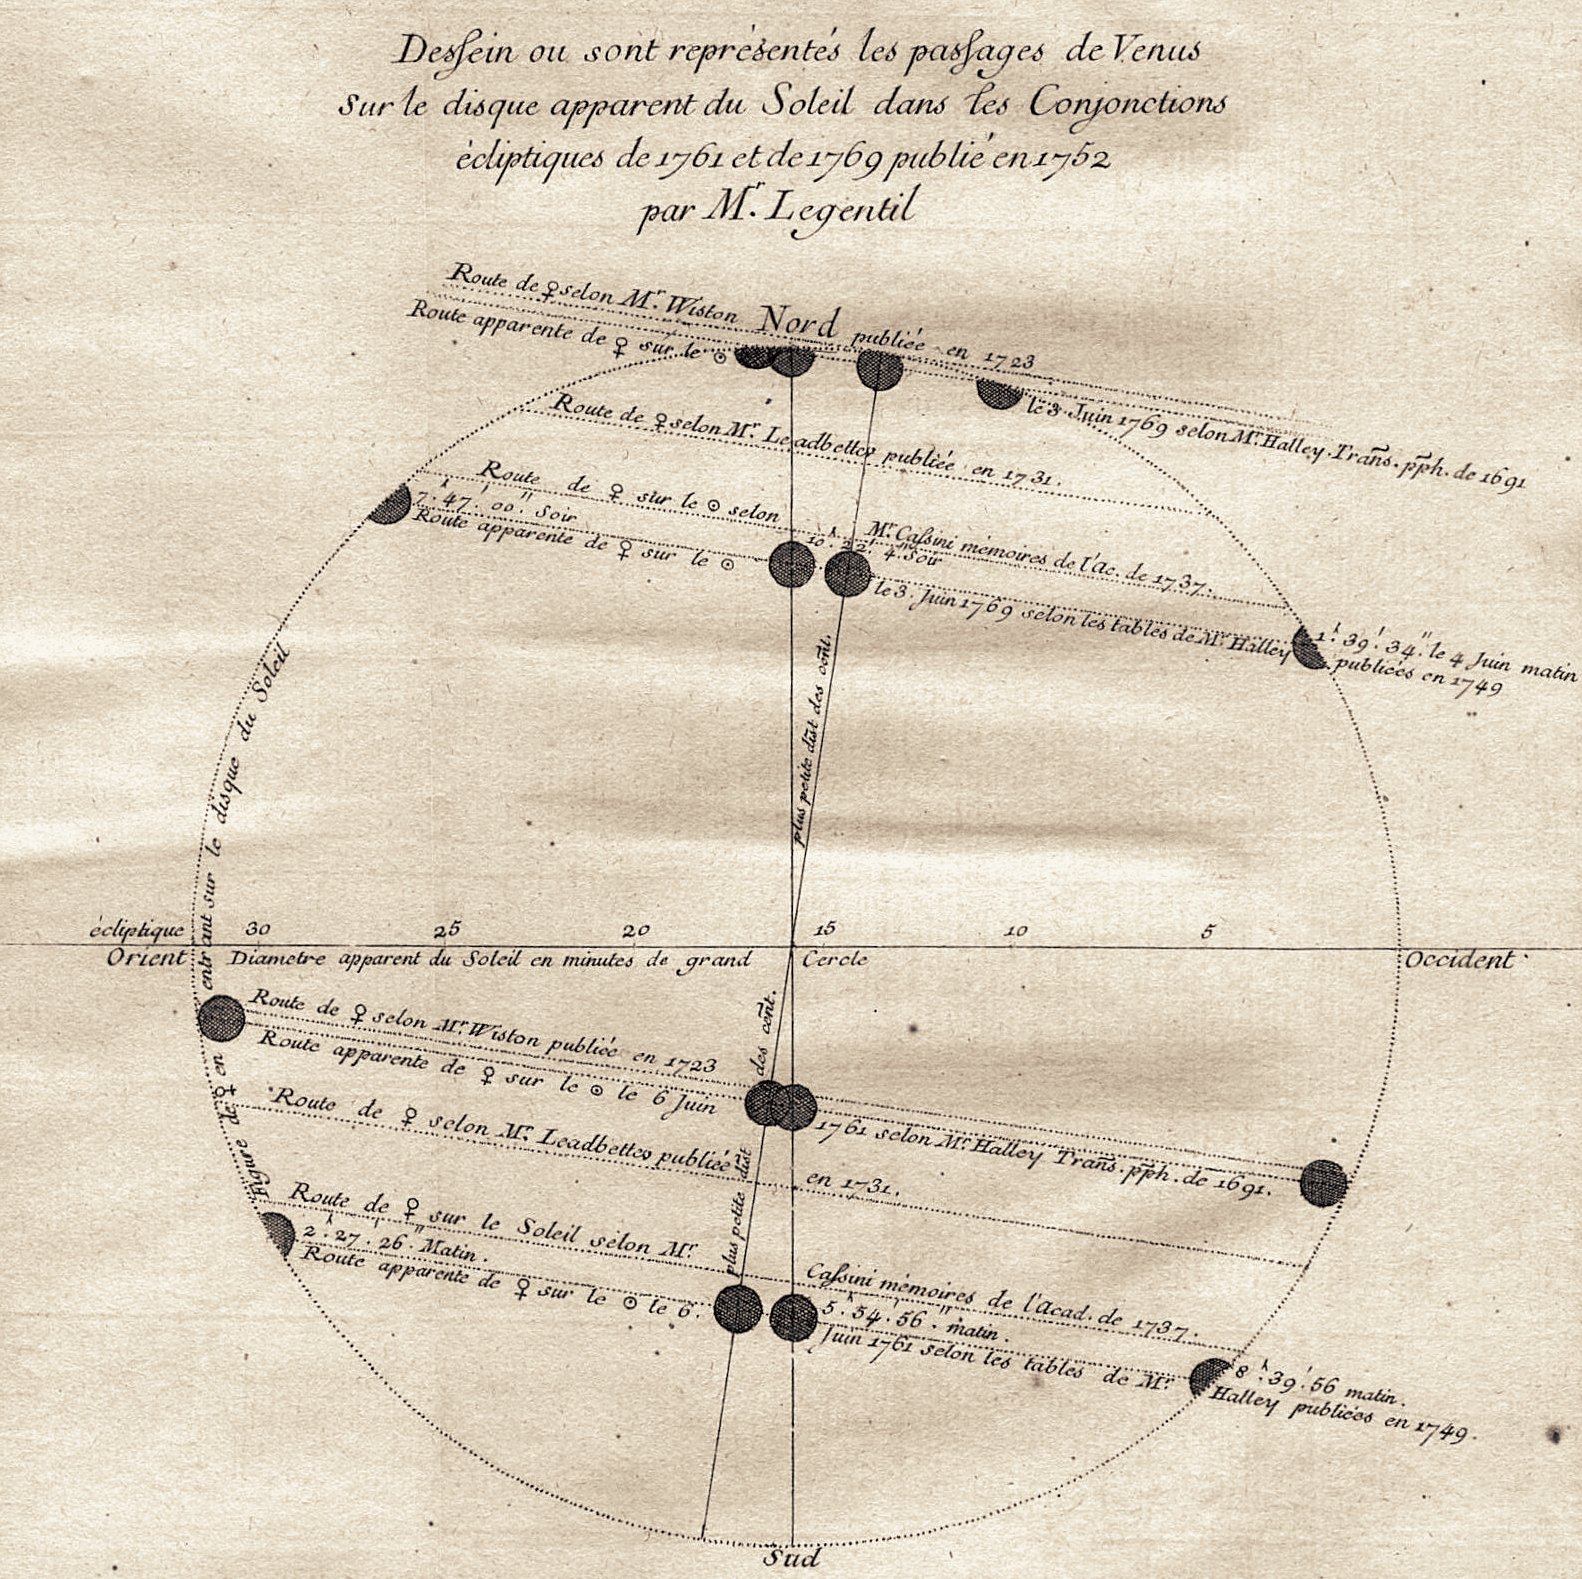 Dessein ou sont représentés les passages de Venus
Sur le disque apparent du Soleil dans les Conjonctions
écliptiques de 1761 et de 1769 publié en 1752
par Mr. Legentil
Route de ♀ selon Mr. Wiston publiée en 1723
Nord
Route apparente de ♀ sur le ☉ le 3 Juin 1769 selon Mr Halley Trans. pph. de 1691
Route de ♀ selon Mr. Leadbetter publiée en 1731.
Route de ♀ sur le ☉ selon Mr. Cassini mémoires de l'Ac. de 1737.
7.h 47.' 00." Soir
10.h 22.' 4." Soir
1.h 39.' 34." le 4 Juin matin
Route apparente de ♀ sur le ☉ le 3. Juin 1769 selon les tables de Mr. Halley publiées en 1749
plus petite dist des cent.
Figure de ♀ en entrant sur le disque du Soleil
écliptique 30 25 20 15 10 5
Orient Diametre apparent du Soleil en minutes de grand Cercle Occident
Route de ♀ selon Mr. Wiston publiée en 1723
Route apparente de ♀ sur le ☉ le 6 Juin 1761 selon Mr Halley Trans. pph. de 1691.
Route de ♀ selon Mr. Leadbetter publiée en 1731.
plus petite dist des cent.
Route de ♀ sur le Soleil selon Mr Cassini mémoires de l'Acad. de 1737.
2.h 27.' 26." Matin.
5.h 54.' 56." matin.
8.h 39.' 56 matin.
Route apparente de ♀ sur le ☉ le 6. Juin 1761 selon les tables de Mr Halley publiées en 1749.
Sud